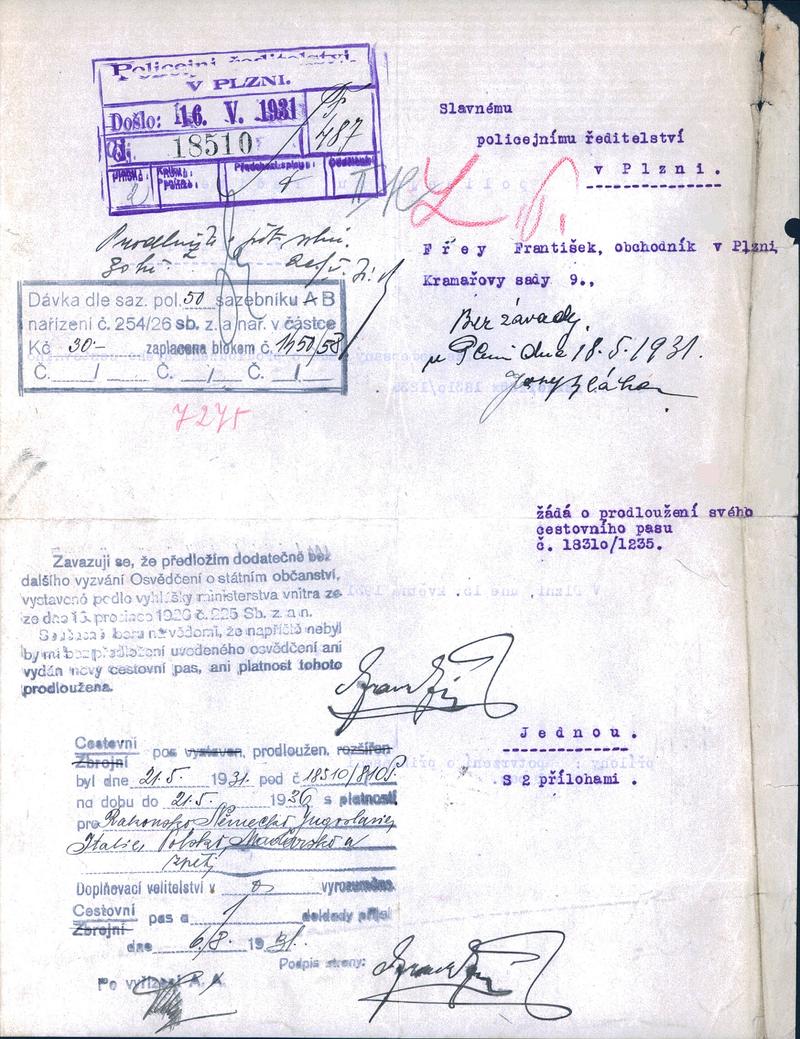 Policejní ředitelství
V PLZNI.
Došlo: 16. V. 1931
Čj. 18510
487
Slavnému
policejnímu ředitelství
v Plzni.
Frey František, obchodník v Plzni,
Kramařovy sady 9.,
Bez závady.
v Plzni dne 18.5.1931.
Dávka dle saz. pol. 50 sazebníku A B
nařízení č. 254/26 sb. z. a nař. v částce
Kč 30·- zaplacena blokem č.
Č. / Č. / Č. /
7275
žádá o prodloužení svého
cestovního pasu
č. 1831o/1235.
Zavazuji se, že předložím dodatečně bez
dalšího vyzvání Osvědčení o státním občanství,
vystavené podle vyhlášky ministerstva vnitra ze
ze dne 15. prosince 1926 č. 225 Sb. z. a n.
Současně beru na vědomí, že napříště nebyl
by mi bez předložení uvedeného osvědčení ani
vydán nový cestovní pas, ani platnost tohoto
prodloužena.
Jednou.
S 2 přílohami .
Cestovní
Zbrojní pas vystaven, prodloužen, rozšířen
byl dne 21.5. 1931. pod č 18510/
na dobu do 21.5. 1936 s platností
pro Rakousko, Německo, Jugoslavie,
Italie, Polsko, Maďarsko a
zpět,
Doplňovací velitelství v vyrozuměno.
Cestovní
Zbrojní pas a 1 doklady přijal
dne 6/8. 19 31.
Podpis strany:
Po vyřízení A. A.